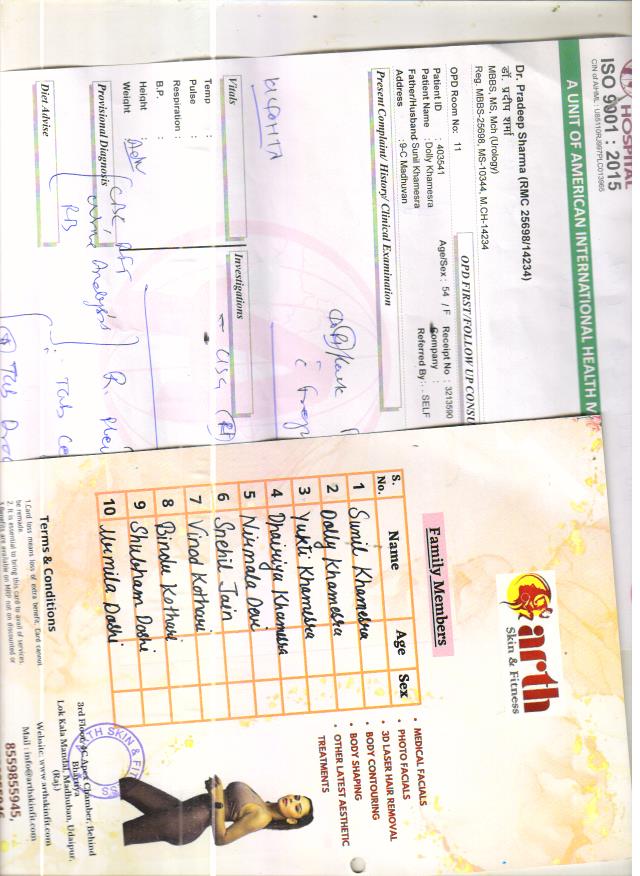 HOSPITAL
ISO 9001 : 2015
CIN of AIHML : U85110RJ997PLC013865
A UNIT OF AMERICAN INTERNATIONAL HEALTH M
Dr. Pradeep Sharma (RMC 25698/14234)
डॉ. प्रदीप शर्मा
MBBS, MS, Mch (Urology)
Reg. MBBS-25698, MS-10344, M.CH-14234
OPD FIRST/FOLLOW UP CONSU
OPD Room No: 11
Patient ID : 403541
Patient Name : Dolly Khamesra
Father/Husband Sunil Khamesra
Address : 9-C Madhuvan
Age/Sex : 54 / F
Receipt No : 3213590
Company :
Referred By : - SELF
Present Complaint/ History/ Clinical Examination
Vitals
Temp :
Pulse :
Respiration :
B.P. :
Height :
Weight :
Investigations
Provisional Diagnosis
CBC RFT
Urine Analysis
Diet Advise
arth
Skin & Fitness
Family Members
S. No. Name Age Sex
1 Sunil Khamesra
2 Dolly Khamesra
3 Yukti Khamesra
4 Dhairya Khamesra
5 Nirmala Devi
6 Snehil Jain
7 Vinod Kothari
8 Bindu Kothari
9 Shubham Doshi
10 Urmila Doshi
• MEDICAL FACIALS
• PHOTO FACIALS
• 3D LASER HAIR REMOVAL
• BODY CONTOURING
• BODY SHAPING
• OTHER LATEST AESTHETIC
TREATMENTS
Terms & Conditions
1.Card loss means loss of extra benefit. Card cannot
be remade.
2. It is essential to bring this card to avail of services.
Benefits are available on MRP not on discounted or
3rd Floor, 4C Apex Chamber, Behind
Bhartiya
Lok Kala Mandal, Madhuban, Udaipur,
(Raj.)
Website: www.arthskinfit.com
Mail : info@arthskinfit.com
8559855945,